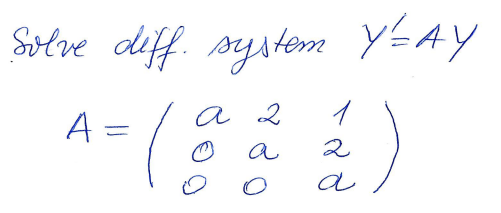 Solve diff. system Y'=AY
A = ( a 2 1
0 a 2
0 0 a )